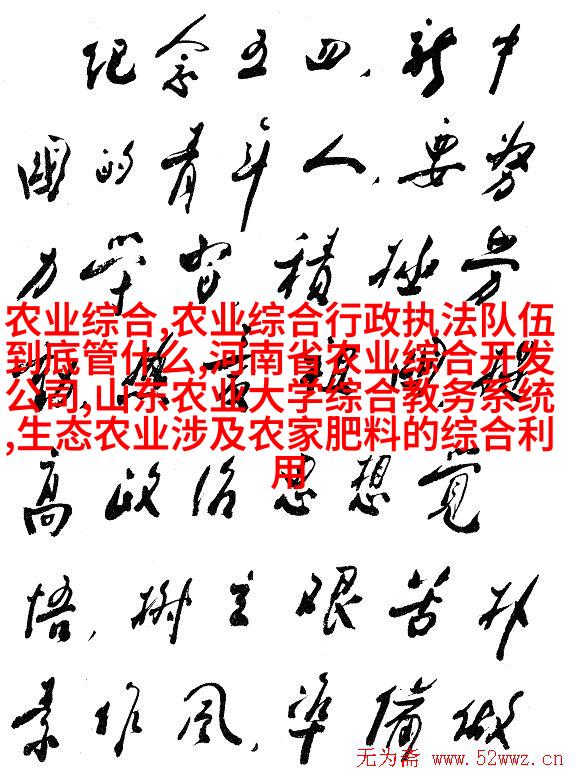 纪念五四，新中
国的青年人，要努
力学习，積極劳
农业综合,农业综合行政执法队伍
到底管什么,河南省农业综合开发
公司,山东农业大学综合教务系统
,生态农业涉及农家肥料的综合利
用
高政治思想觉
悟，树立艰苦朴
素作风，準備做
无为斋 www.52wwz.cn